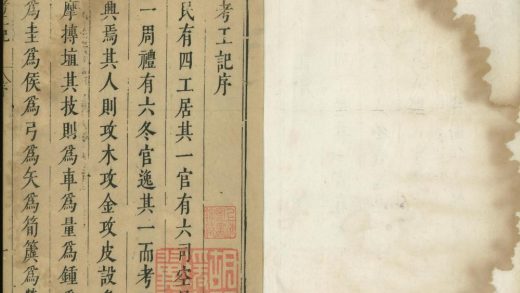 考工記序
民有四工居其一官有六司空
一周禮有六冬官逸其一而考
興焉其人則攻木攻金攻皮設
摩摶埴其技則爲車爲量爲鍾
爲圭爲侯爲弓爲矢爲筍簴爲